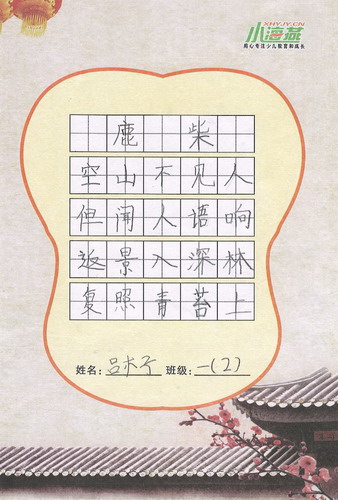 XHYJY.CN
小海燕
用心专注少儿教育和成长
鹿柴
空山不见人
但闻人语响
返景入深林
复照青苔上
姓名:吕木子 班级:一(2)